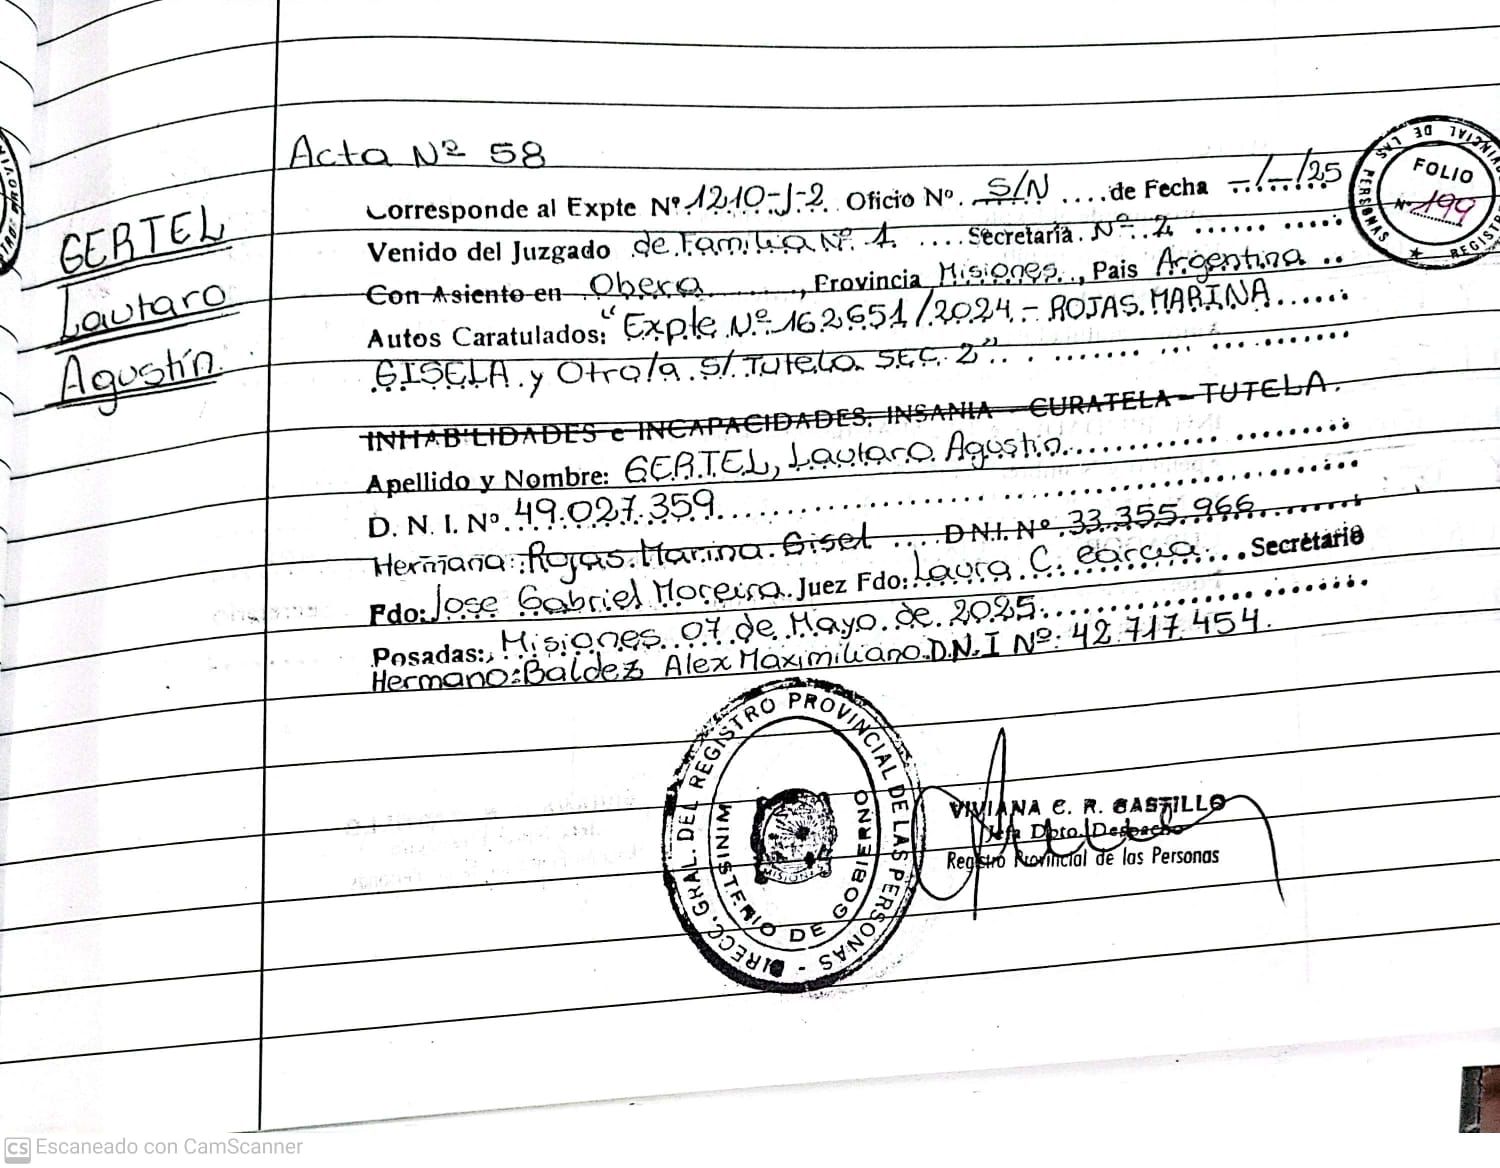 Acta Nº 58
GERTEL
Lautaro
Agustín.
Corresponde al Expte Nº.1210-J-2. Oficio Nº. S/N ....de Fecha -/-/25
Venido del Juzgado de Familia Nº. 1. .... Secretaría. Nº. 2 ...........
Con Asiento en Obera ......., Provincia Misiones.., Pais Argentina ..
Autos Caratulados: "Expte Nº 162651/2024.- ROJAS. MARINA......
GISELA. y Otro/a. S/. TUTELA SEC. 2"..
INHABILIDADES e INCAPACIDADES: INSANIA - CURATELA - TUTELA.
Apellido y Nombre: GERTEL, Lautaro Agustín.
D. N. I. Nº. 49.027.359
Hermana: Rojas. Marina. Gisel .... D.N.I. Nº. 33.355.966
Fdo: Jose Gabriel Moreira. Juez Fdo: Laura C. García... Secretario
Posadas:, Misiones 07 de Mayo. de 2025.
Hermano: Baldez Alex Maximiliano. D.N.I Nº. 42.717.454.
PROVINCIAL DE LAS PERSONAS
FOLIO
Nº 199
★ REGISTR
DIRECC. GRAL. DEL REGISTRO PROVINCIAL DE LAS PERSONAS -
MINISTERIO DE GOBIERNO
MISIONES
VIVIANA C. R. CASTILLO
Jefa Dpto. Despacho
Registro Provincial de las Personas
CS Escaneado con CamScanner